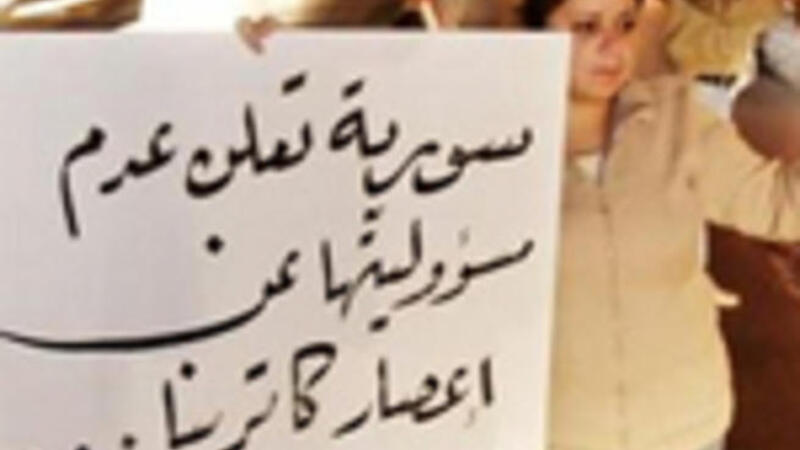 سورية تعلن عدم
مسؤوليتها عن
إعصار كاترينا